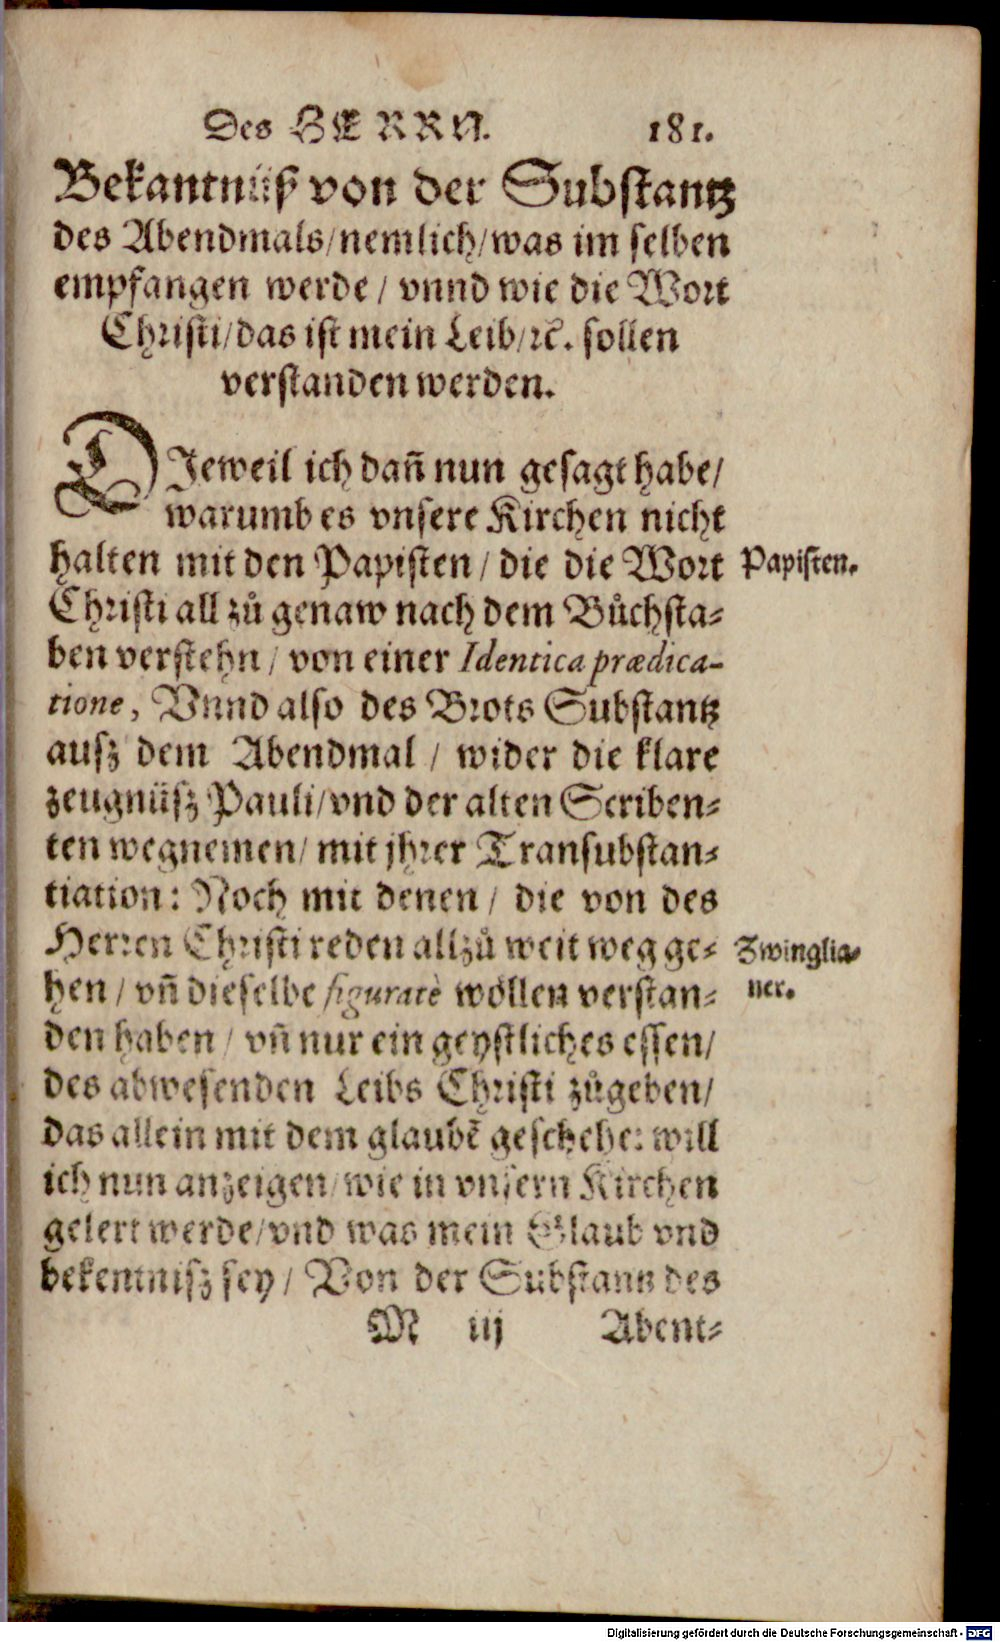 Des HERRN. 181.
Bekantnüß von der Substantz
des Abendmals/nemlich/was im selben
empfangen werde / vnnd wie die Wort
Christi/das ist mein Leib/ꝛc. sollen
verstanden werden.
DJeweil ich dañ nun gesagt habe/
warumb es vnsere Kirchen nicht
halten mit den Papisten / die die Wort
Papisten.
Christi all zů genaw nach dem Bůchsta-
ben verstehn / von einer Identica prædica-
tione, Vnnd also des Brots Substantz
ausz dem Abendmal / wider die klare
zeugnüsz Pauli/vnd der alten Scriben-
ten wegnemen/ mit jhrer Transubstan-
tiation: Noch mit denen / die von des
Herren Christi reden allzů weit weg ge-
Zwinglia-
hen / vñ dieselbe figuratè wöllen verstan-
ner.
den haben / vñ nur ein geystliches essen/
des abwesenden Leibs Christi zůgeben/
das allein mit dem glaubẽ geschehe: will
ich nun anzeigen/wie in vnsern Kirchen
gelert werde/vnd was mein Glaub vnd
bekentnisz sey / Von der Substantz des
M iij Abent-
Digitalisierung gefördert durch die Deutsche Forschungsgemeinschaft - DFG